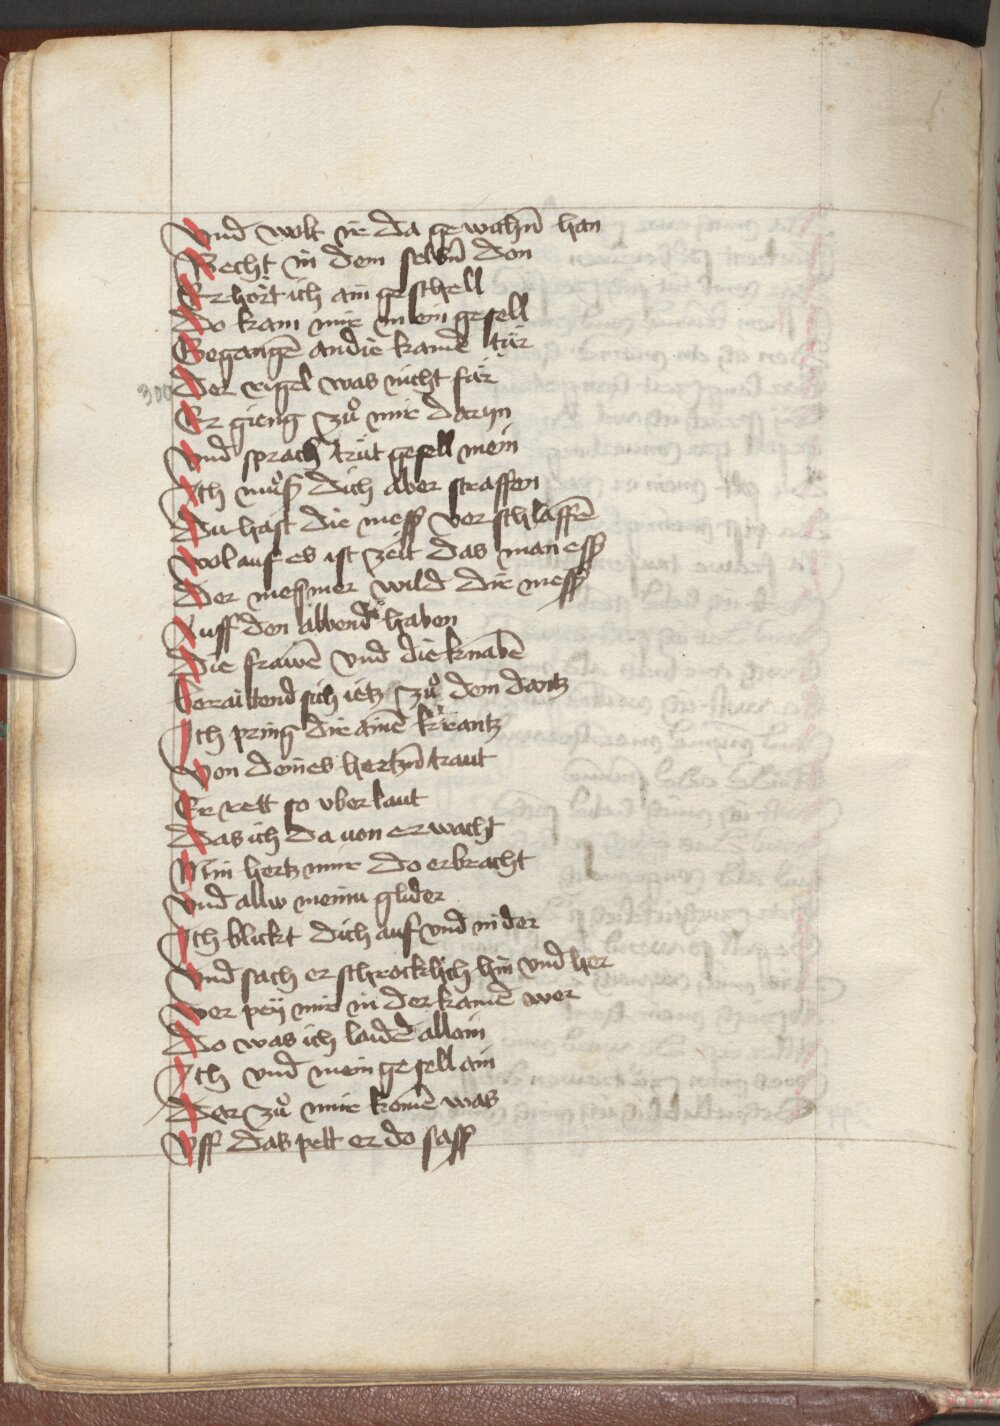 Vnd wolt ir da gewachñ han
Recht in dem selbñ don
Erhört ich ain geschell
Do kam mir mein gesell
Gegangē an die kamē tür
300
Der rigel was nicht für
Er gieng zů mir daryn
Vnd sprach trut gesell mein
Ich můß dich aber straffen
Du hast die mess verschlaffē
Wol auf es ist zeit das man ess
Der messner wild die mess
Auff den abbend haben
Die frawē vnd die knabē
Beraittend sich ietz zů dem dantz
Ich pring dir ainē krantz
Von deines hertzñ traut
Er rett so vberlaut
Das ich da uon erwacht
Min hertz mir do erbracht
Vnd allw meinu glider
Ich blickt dich auf vnd nider
Vnd sach erschrocklich hin vnd her
Wer pey mir in der kamē wer
Do was ich laidē allain
Ich vnd mein gesell ain
Der zů mir komē was
Vff das pett er do sass